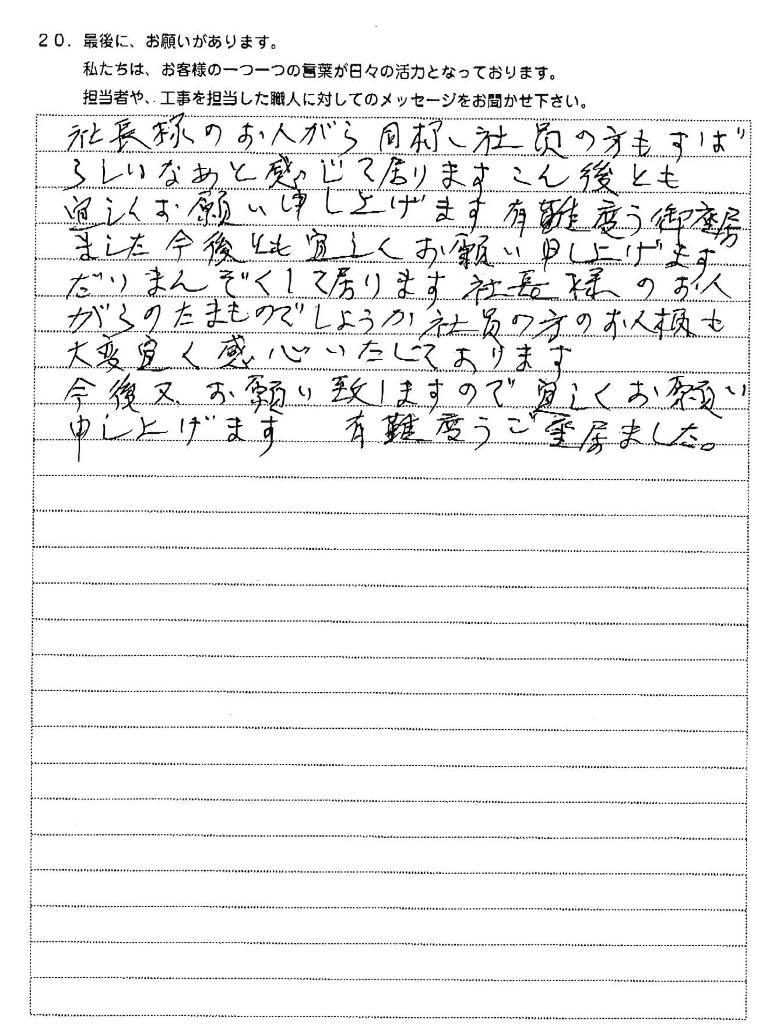 20. 最後に、お願いがあります。
私たちは、お客様の一つ一つの言葉が日々の活力となっております。
担当者や、工事を担当した職人に対してのメッセージをお聞かせ下さい。
社長様のお人がら同様、社員の方もすば
らしいなあと感じて居りますこん後とも
宜しくお願い申し上げます有難度う御座居
ました今後とも宜しくお願い申し上げます
だいまんぞくして居ります社長様のお人
がらのたまものでしょうか社員の方のお人柄も
大変宜く感心いたしております
今後又お願い致しますので宜しくお願い
申し上げます 有難度うご座居ました。